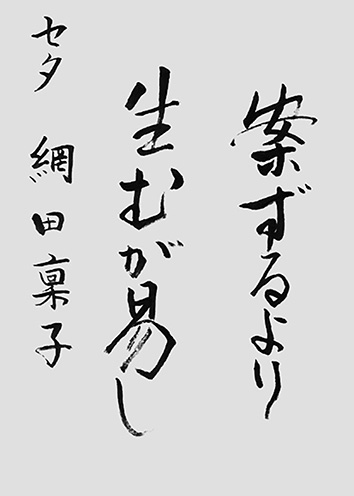 案ずるより
生むが易し
セタ 網田稟子